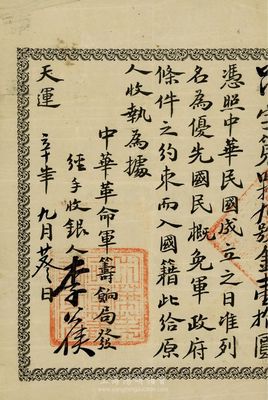 憑照中華民國成立之日准列
名為優先國民概免軍政府
條件之約束而入國籍此給原
人收執為據
中華革命軍籌餉局發
經手收銀人李公俠
天運
九月
日